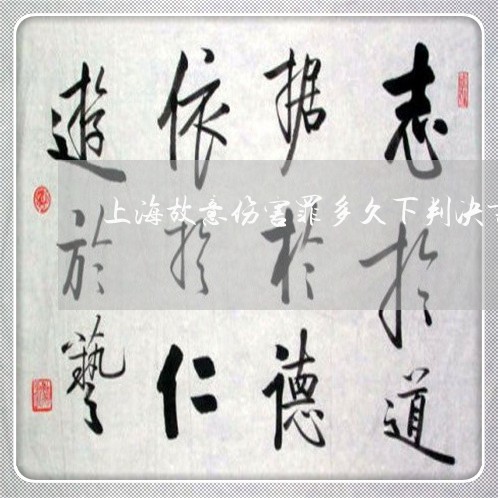 志於道
据於德
依於仁
遊於藝
上海故意伤害罪多久下判决